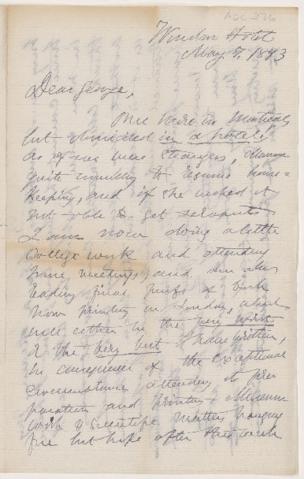 Windsor Hotel
May 7, 1893
Dear George,
Once here in Montreal
but domiciled in a hotel!
as if we were strangers, Mamma
quite unwilling to resume house-
keeping, and if she wished it
not able to get servants.
I am now doing a little
College work and attending
some meetings, and am also
reading final proofs of Book
now printing in London, which
will either be the very worst
or the very best I have written,
in consequence of the exceptional
circumstances attending its pre
paration and printing. Museum
work & scientific matters hanging
fire but hope after this week